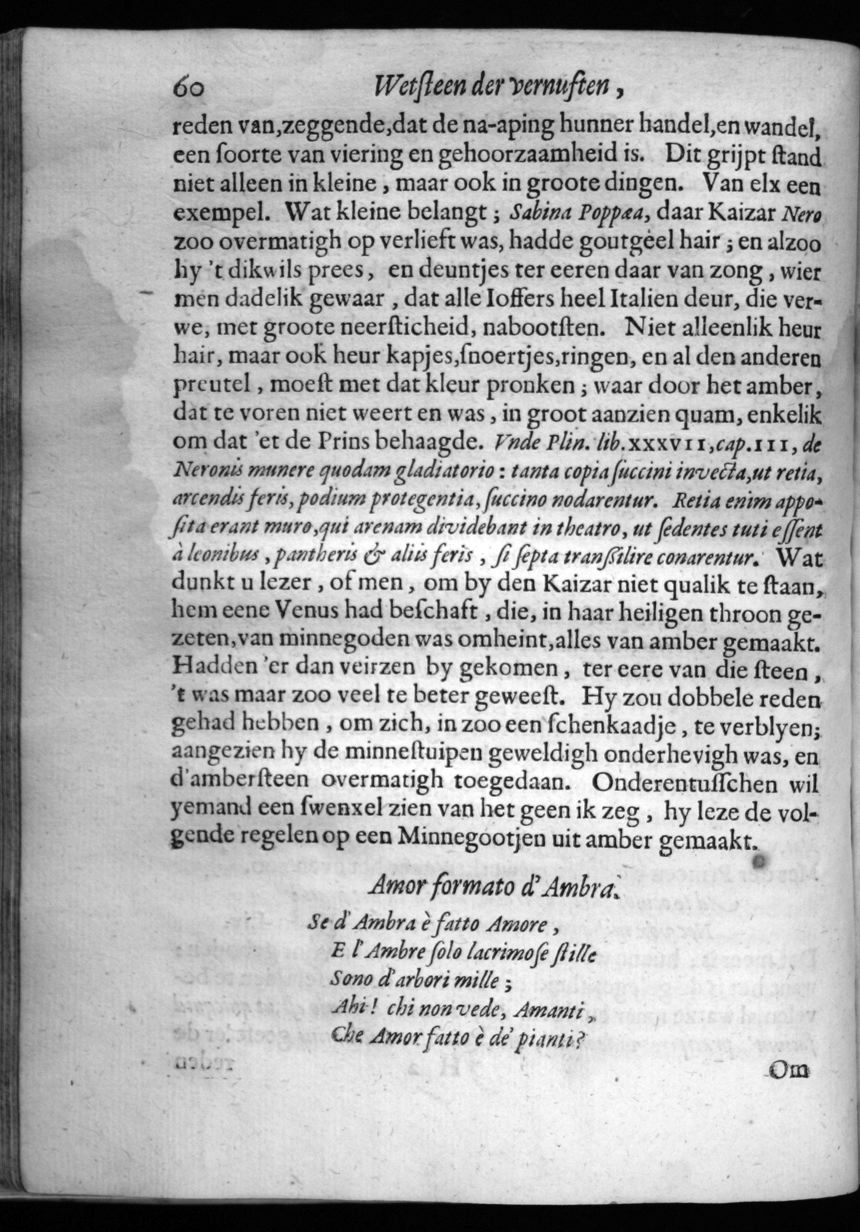 60 Wetſteen der vernuften,
reden van,zeggende,dat de na-aping hunner handel,en wandel,
een ſoorte van viering en gehoorzaamheid is. Dit grijpt ſtand
niet alleen in kleine, maar ook in groote dingen. Van elx een
exempel. Wat kleine belangt; Sabina Poppæa, daar Kaizar Nero
zoo overmatigh op verlieft was, hadde goutgeel hair; en alzoo
hy 't dikwils prees, en deuntjes ter eeren daar van zong, wier
men dadelik gewaar, dat alle Ioffers heel Italien deur, die ver-
we, met groote neerſticheid, nabootſten. Niet alleenlik heur
hair, maar ook heur kapjes,ſnoertjes,ringen, en al den anderen
preutel, moeſt met dat kleur pronken; waar door het amber,
dat te voren niet weert en was, in groot aanzien quam, enkelik
om dat 'et de Prins behaagde. Vnde Plin. lib.XXXVII,cap.III, de
Neronis munere quodam gladiatorio: tanta copia ſuccini invecta,ut retia,
arcendis feris, podium protegentia, ſuccino nodarentur. Retia enim appo-
ſita erant muro,qui arenam dividebant in theatro, ut ſedentes tuti eſſent
à leonibus, pantheris & aliis feris, ſi ſepta tranſilire conarentur. Wat
dunkt u lezer, of men, om by den Kaizar niet qualik te ſtaan,
hem eene Venus had beſchaft, die, in haar heiligen throon ge-
zeten,van minnegoden was omheint,alles van amber gemaakt.
Hadden 'er dan veirzen by gekomen, ter eere van die ſteen,
't was maar zoo veel te beter geweeſt. Hy zou dobbele reden
gehad hebben, om zich, in zoo een ſchenkaadje, te verblyen;
aangezien hy de minneſtuipen geweldigh onderhevigh was, en
d'amberſteen overmatigh toegedaan. Onderentuſſchen wil
yemand een ſwenxel zien van het geen ik zeg, hy leze de vol-
gende regelen op een Minnegootjen uit amber gemaakt.
Amor formato d' Ambra.
Se d' Ambra è fatto Amore,
E l' Ambre ſolo lacrimoſe ſtille
Sono d'arbori mille;
Ahi! chi non vede, Amanti,
Che Amor fatto è de' pianti?
Om